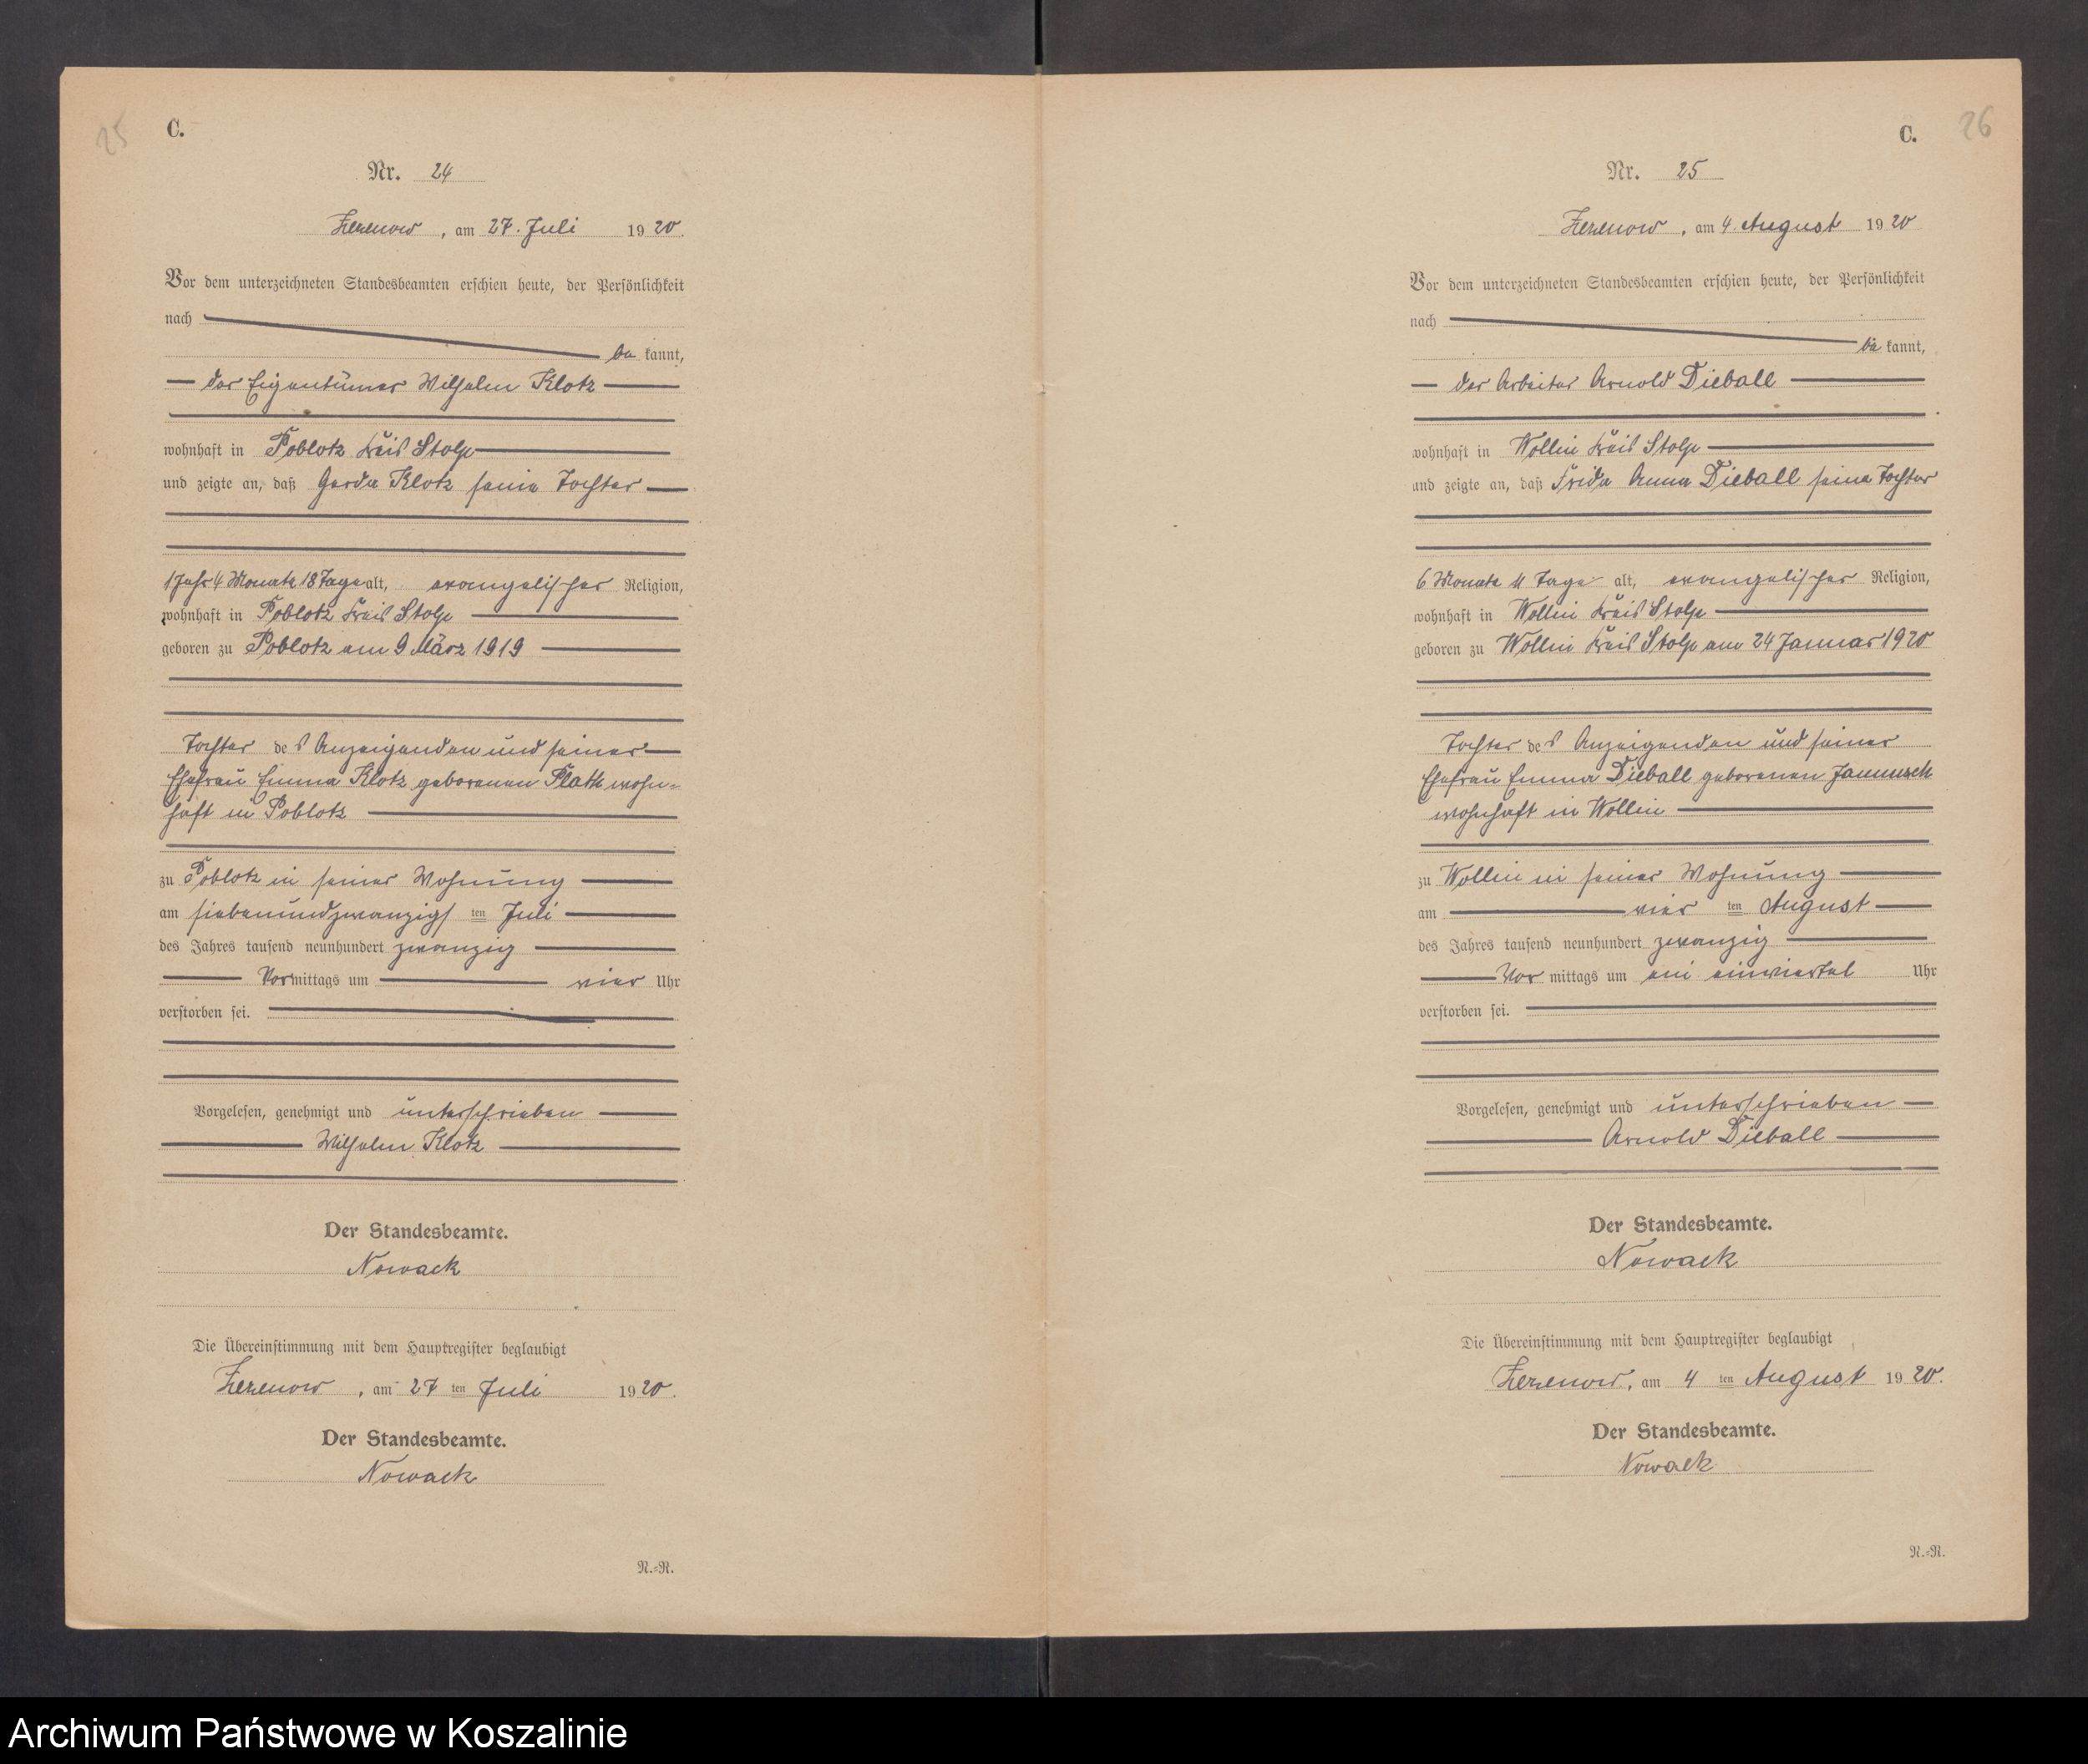 25
C.
Nr. 24
Zezenow, am 27. Juli 1920.
Vor dem unterzeichneten Standesbeamten erschien heute, der Persönlichkeit
nach
be kannt,
der Eigentümer Wilhelm Klotz
wohnhaft in Poblotz Kreis Stolp
und zeigte an, daß Gerda Klotz seine Tochter
1 Jahr 4 Monate 18 Tage alt, evangelischer Religion,
wohnhaft in Poblotz Kreis Stolp
geboren zu Poblotz am 9 März 1919
Tochter des Anzeigenden und seiner
Ehefrau Emma Klotz geborenen Plath wohn-
haft in Poblotz
zu Poblotz in seiner Wohnung
am siebenundzwanzigsten Juli
des Jahres tausend neunhundert zwanzig
Vormittags um vier Uhr
verstorben sei.
Vorgelesen, genehmigt und unterschrieben
Wilhelm Klotz
Der Standesbeamte.
Nowack
Die Übereinstimmung mit dem Hauptregister beglaubigt
Zezenow, am 27 ten Juli 1920.
Der Standesbeamte.
Nowack
N.=R.
26
C.
Nr. 25
Zezenow, am 4. August 1920
Vor dem unterzeichneten Standesbeamten erschien heute, der Persönlichkeit
nach
be kannt,
der Arbeiter Arnold Dieball
wohnhaft in Wollin Kreis Stolp
und zeigte an, daß Frida Anna Dieball seine Tochter
6 Monate 11 Tage alt, evangelischer Religion,
wohnhaft in Wollin Kreis Stolp
geboren zu Wollin Kreis Stolp am 24 Januar 1920
Tochter des Anzeigenden und seiner
Ehefrau Emma Dieball geborenen
wohnhaft in Wollin
zu Wollin in seiner Wohnung
am vier ten August
des Jahres tausend neunhundert zwanzig
Vor mittags um ein einviertel Uhr
verstorben sei.
Vorgelesen, genehmigt und unterschrieben
Arnold Dieball
Der Standesbeamte.
Nowack
Die Übereinstimmung mit dem Hauptregister beglaubigt
Zezenow, am 4 ten August 1920.
Der Standesbeamte.
Nowack
N.=R.
Archiwum Państwowe w Koszalinie